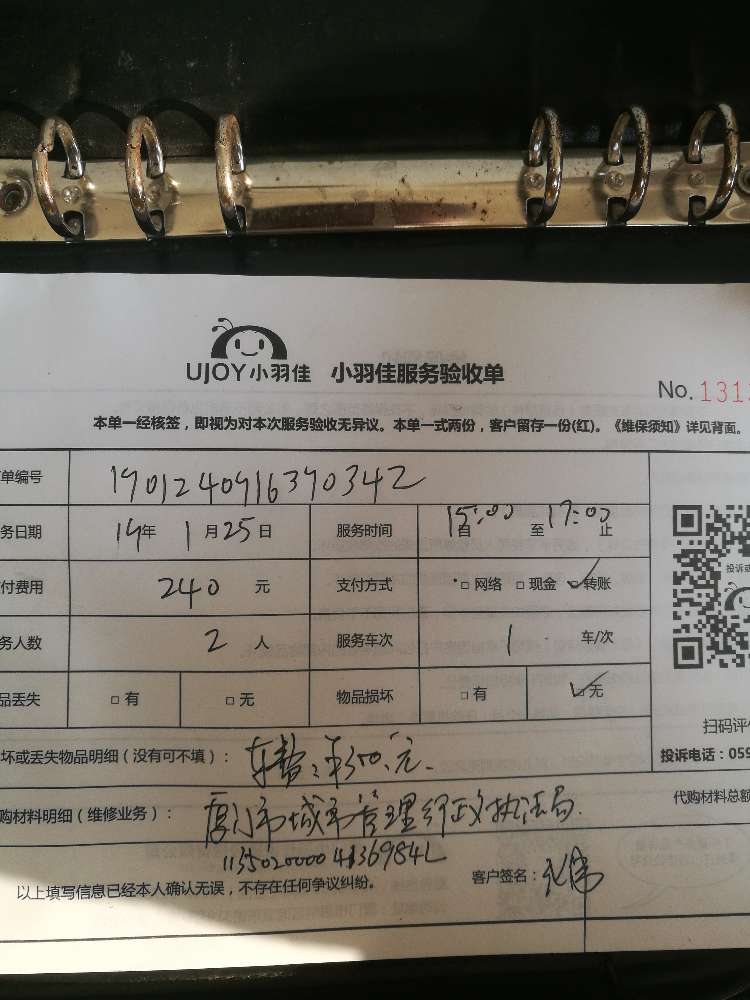 UJOY小羽佳 小羽佳服务验收单
No. 131
本单一经核签，即视为对本次服务验收无异议。本单一式两份，客户留存一份(红)。《维保须知》详见背面。
单编号 1901240916390342
务日期 19年 1月25日 服务时间 15:00 自 至 17:00 止
付费用 240 元 支付方式 □ 网络 □ 现金 ☑ 转账
务人数 2 人 服务车次 1 车/次
品丢失 □ 有 □ 无 物品损坏 □ 有 ☑ 无
投诉或
扫码评价
坏或丢失物品明细（没有可不填）： 车费：300.元.
投诉电话：059
购材料明细（维修业务）： 厦门市城市管理行政执法局.
代购材料总额
113502000041369842
以上填写信息已经本人确认无误，不存在任何争议纠纷。 客户签名：